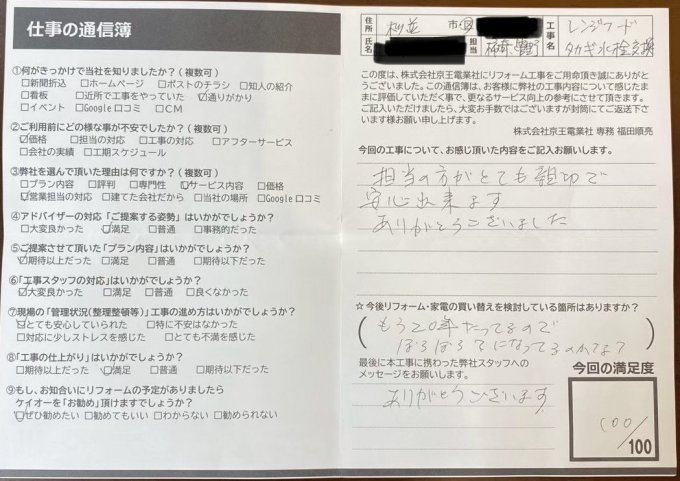 仕事の通信簿
①何がきっかけで当社を知りましたか？（複数可）
□新聞折込 □ホームページ □ポストのチラシ □知人の紹介
□看板 □近所で工事をやっていた ☑通りがかり
□イベント □Google口コミ □CM
②ご利用前にどの様な事が不安でしたか？（複数可）
☑価格 □担当の対応 □工事の対応 □アフターサービス
□会社の実績 □工期スケジュール
③弊社を選んで頂いた理由は何ですか？（複数可）
□プラン内容 □評判 □専門性 ☑サービス内容 □価格
☑営業担当の対応 □建てた会社だから □当社の場所 □Google口コミ
④アドバイザーの対応「ご提案する姿勢」はいかがでしょうか？
□大変良かった ☑満足 □普通 □事務的だった
⑤ご提案させて頂いた「プラン内容」はいかがでしょうか？
☑期待以上だった □満足 □普通 □期待以下だった
⑥「工事スタッフの対応」はいかがでしょうか？
☑大変良かった □満足 □普通 □良くなかった
⑦現場の「管理状況(整理整頓等)」工事の進め方はいかがでしょうか？
☑とても安心していられた □特に不安はなかった
□対応に少しストレスを感じた □とても不満を感じた
⑧「工事の仕上がり」はいかがでしょうか？
□期待以上だった ☑満足 □普通 □期待以下だった
⑨もし、お知合いにリフォームの予定がありましたら
ケイオーを「お勧め」頂けますでしょうか？
☑ぜひ勧めたい □勧めてもいい □わからない □勧められない
住所 市・区
氏名 担当
工事名 レンジフード
タカギ水栓交換
この度は、株式会社京王電業社にリフォーム工事をご用命頂き誠にありがと
うございました。この通信簿は、お客様に弊社の工事内容について感じたま
まに評価していただく事で、更なるサービス向上の参考にさせて頂きます。
ご記入いただけましたら、大変お手数ではございますが封筒にてご返送下さ
います様お願い申し上げます。
株式会社京王電業社 専務 福田順亮
今回の工事について、お感じ頂いた内容をご記入お願いします。
担当の方がとても親切で
安心出来ます
ありがとうございました
☆今後リフォーム・家電の買い替えを検討している箇所はありますか？
もう20年たってるので
ぼろぼろになってるのかな？
最後に本工事に携わった弊社スタッフへの
メッセージをお願いします。
ありがとうございます
今回の満足度
100/100